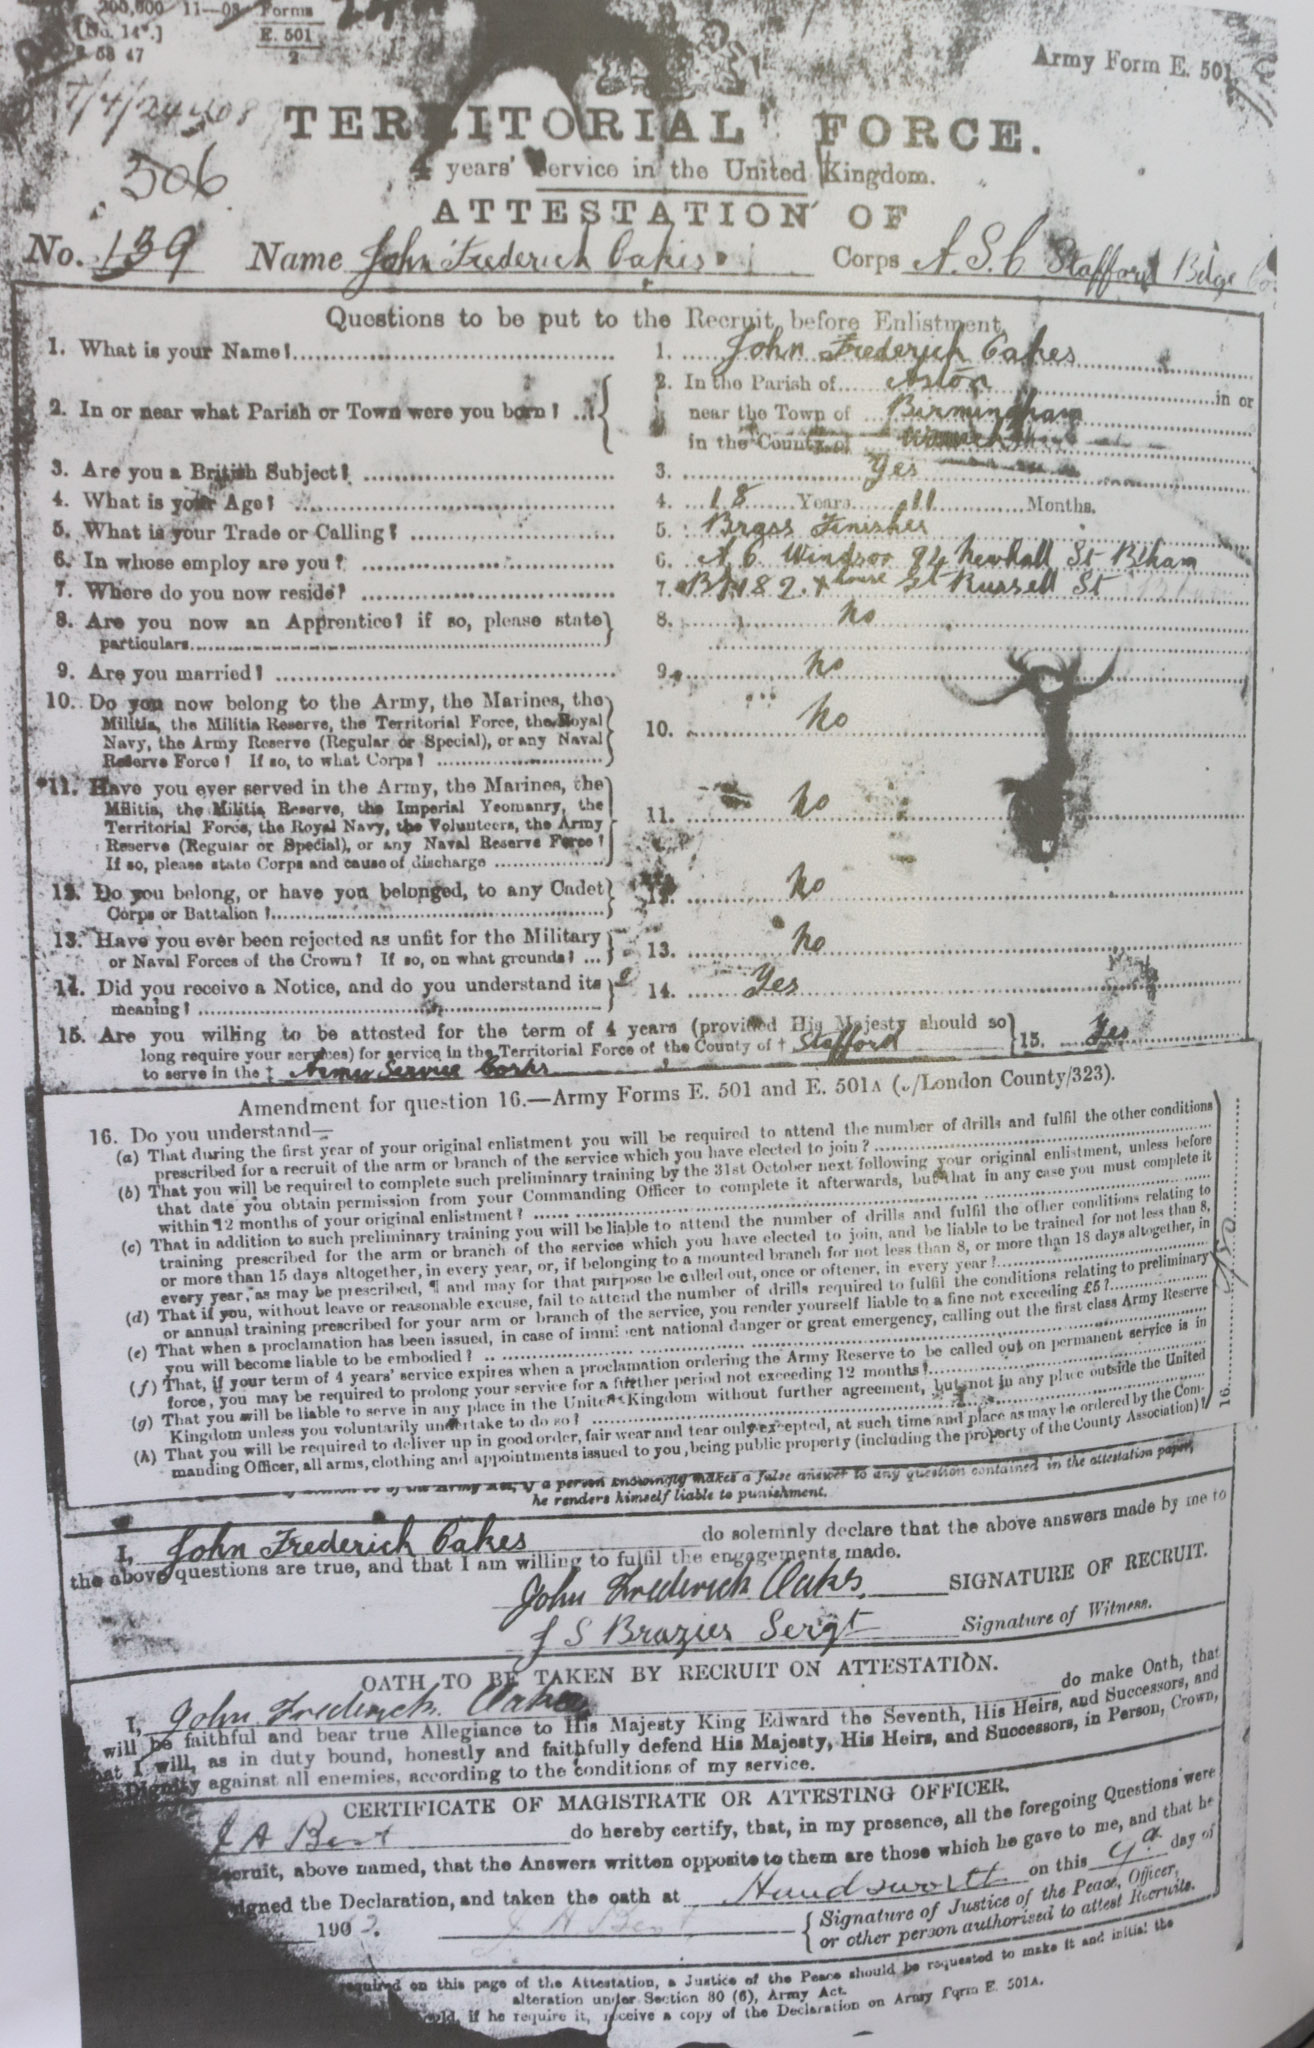 200,000 11—08 Forms
[No. 14.] E. 501
58 47 2
Army Form E. 501
TERRITORIAL FORCE.
506
4 years' Service in the United Kingdom.
ATTESTATION OF
No. 139 Name John Frederick Oakes Corps A.S.C Stafford Bdge Co.
Questions to be put to the Recruit before Enlistment.
1. What is your Name? 1. John Frederick Oakes
2. In or near what Parish or Town were you born? 2. In the Parish of Aston in or
near the Town of Birmingham
in the County of
3. Are you a British Subject? 3. Yes
4. What is your Age? 4. 18 Years 11 Months.
5. What is your Trade or Calling? 5. Brass Finisher
6. In whose employ are you? 6. A C Windsor 94 Newhall St Bham
7. Where do you now reside? 7. house Gt Russell St
8. Are you now an Apprentice? if so, please state particulars 8. No
9. Are you married? 9. No
10. Do you now belong to the Army, the Marines, the
Militia, the Militia Reserve, the Territorial Force, the Royal
Navy, the Army Reserve (Regular or Special), or any Naval
Reserve Force? If so, to what Corps? 10. No
*11. Have you ever served in the Army, the Marines, the
Militia, the Militia Reserve, the Imperial Yeomanry, the
Territorial Force, the Royal Navy, the Volunteers, the Army
Reserve (Regular or Special), or any Naval Reserve Force?
If so, please state Corps and cause of discharge 11. No
12. Do you belong, or have you belonged, to any Cadet
Corps or Battalion? 12. No
13. Have you ever been rejected as unfit for the Military
or Naval Forces of the Crown? If so, on what grounds? 13. No
14. Did you receive a Notice, and do you understand its
meaning? 14. Yes
15. Are you willing to be attested for the term of 4 years (provided His Majesty should so
long require your services) for service in the Territorial Force of the County of † Stafford
to serve in the ‡ Army Service Corps 15. Yes
Amendment for question 16.—Army Forms E. 501 and E. 501A (/London County/323).
16. Do you understand—
(a) That during the first year of your original enlistment you will be required to attend the number of drills and fulfil the other conditions
prescribed for a recruit of the arm or branch of the service which you have elected to join?
(b) That you will be required to complete such preliminary training by the 31st October next following your original enlistment, unless before
that date you obtain permission from your Commanding Officer to complete it afterwards, but that in any case you must complete it
within 12 months of your original enlistment?
(c) That in addition to such preliminary training you will be liable to attend the number of drills and fulfil the other conditions relating to
training prescribed for the arm or branch of the service which you have elected to join, and be liable to be trained for not less than 8,
or more than 15 days altogether, in every year, or, if belonging to a mounted branch for not less than 8, or more than 18 days altogether, in
every year, as may be prescribed, ¶ and may for that purpose be called out, once or oftener, in every year?
(d) That if you, without leave or reasonable excuse, fail to attend the number of drills required to fulfil the conditions relating to preliminary
or annual training prescribed for your arm or branch of the service, you render yourself liable to a fine not exceeding £5?
(e) That when a proclamation has been issued, in case of imminent national danger or great emergency, calling out the first class Army Reserve
you will become liable to be embodied?
(f) That, if your term of 4 years' service expires when a proclamation ordering the Army Reserve to be called out on permanent service is in
force, you may be required to prolong your service for a further period not exceeding 12 months?
(g) That you will be liable to serve in any place in the United Kingdom without further agreement, but not in any place outside the United
Kingdom unless you voluntarily undertake to do so?
(h) That you will be required to deliver up in good order, fair wear and tear only excepted, at such time and place as may be ordered by the Com-
manding Officer, all arms, clothing and appointments issued to you, being public property (including the property of the County Association)?
16. Yes
of the Army Act, if a person knowingly makes a false answer to any question contained in the attestation paper,
he renders himself liable to punishment.
I, John Frederick Oakes do solemnly declare that the above answers made by me to
the above questions are true, and that I am willing to fulfil the engagements made.
John Frederick Oakes SIGNATURE OF RECRUIT.
J S Brazier Sergt Signature of Witness.
OATH TO BE TAKEN BY RECRUIT ON ATTESTATION.
I, John Frederick Oakes do make Oath, that
will be faithful and bear true Allegiance to His Majesty King Edward the Seventh, His Heirs, and Successors, and
that I will, as in duty bound, honestly and faithfully defend His Majesty, His Heirs, and Successors, in Person, Crown,
Dignity against all enemies, according to the conditions of my service.
CERTIFICATE OF MAGISTRATE OR ATTESTING OFFICER.
J A Bent do hereby certify, that, in my presence, all the foregoing Questions were
Recruit, above named, that the Answers written opposite to them are those which he gave to me, and that he
signed the Declaration, and taken the oath at Handsworth on this 9th day of
190 J A Bent Signature of Justice of the Peace, Officer,
or other person authorised to attest Recruits.
required on this page of the Attestation, a Justice of the Peace should be requested to make it and initial the
alteration under Section 80 (6), Army Act.
if he require it, receive a copy of the Declaration on Army Form E. 501A.